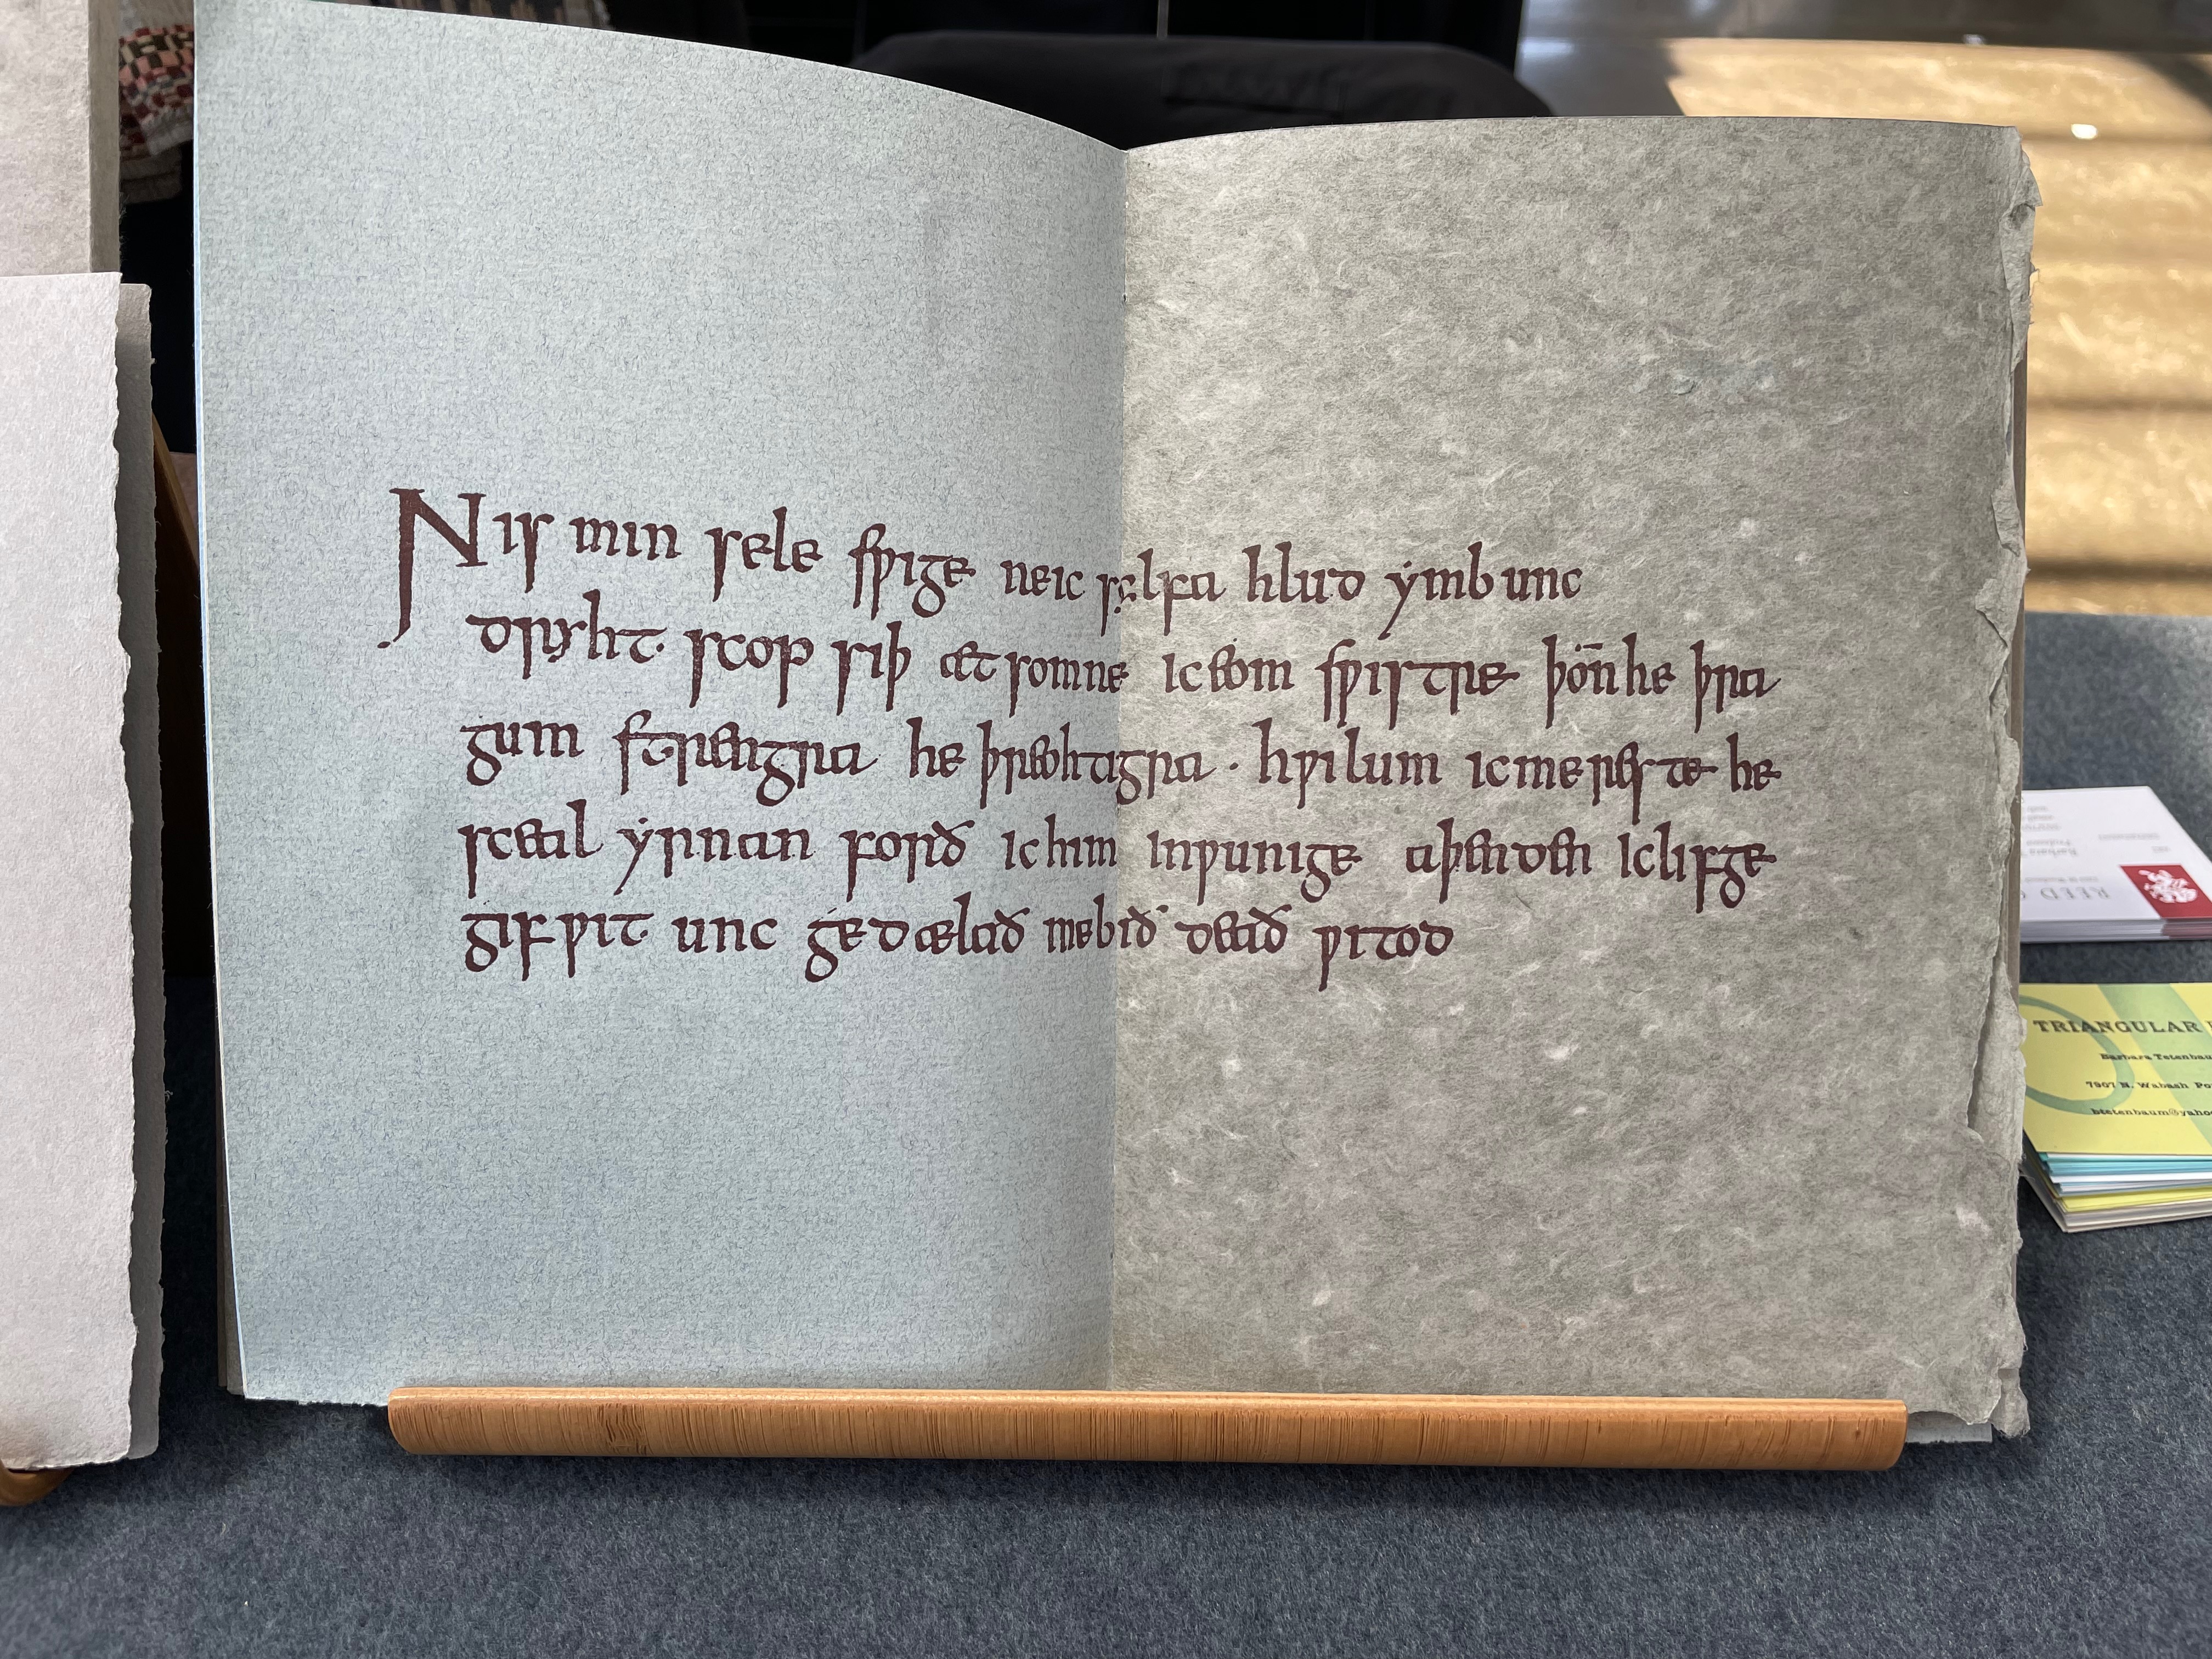 Nis min sele sƿige neic sylfa hlud ẏmb unc
dryht scop siþ æt somne ic eom sƿistre þōn he þra
gum strengra he þreohtigra · hƿilum ic me reste he
sceal ẏrnan forð ic him inƿunige aþenden ic lifge
gif ƿit unc gedælað me bið deað ƿitod
REED
TRIANGULAR
Barbara Tetenbau
7907 N. Wabash Po
btetenbaum@yaho